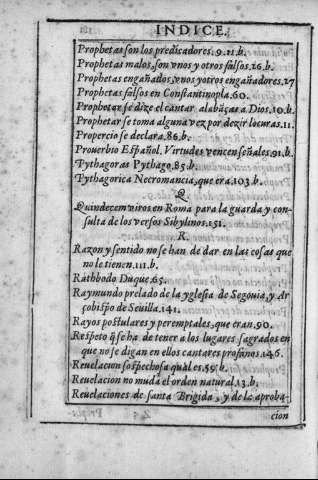 INDICE.
Prophetas son los predicadores. 9. 11. b.
Prophetas malos, son vnos y otros falsos. 16. b.
Prophetas engañados, vnos y otros engañadores. 17
Prophetas falsos en Constantinopla. 60.
Prophetar se dize el cantar alabãças a Dios. 10. b.
Prophetar se toma alguna vez por dezir locuras. 11.
Propercio se declara. 86. b.
Prouerbio Español, Virtudes vencen señales. 91. b.
Pythagoras Pythago. 85. b.
Pythagorica Necromancia, que era. 103. b.
Q
Quindecem viros en Roma para la guarda y con-
sulta de los versos Sibylinos. 151.
R.
Razon y sentido no se han de dar en las cosas que
no le tienen. 111. b.
Rathbodo Duque. 65.
Raymundo prelado de la yglesia de Segouia, y Ar
çobispo de Seuilla. 141.
Rayos postulares y peremptales, que eran. 90.
Respeto q̃ se ha de tener a los lugares sagrados en
que no se digan en ellos cantares profanos. 146.
Reuelacion sospechosa qual es. 59. b.
Reuelacion no muda el orden natural. 13. b.
Reuelaciones de santa Brigida, y de la aproba-
cion